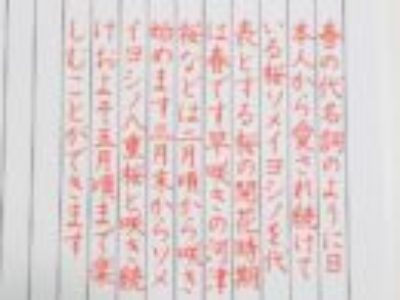 春の代名詞のように日
本人から愛され続けて
いる桜ソメイヨシノを代
表とする桜の開花時期
は春です早咲きの河津
桜などは二月頃から咲き
始めます三月末からソメ
イヨシノ八重桜と咲き続
けおよそ五月頃まで楽
しむことができます